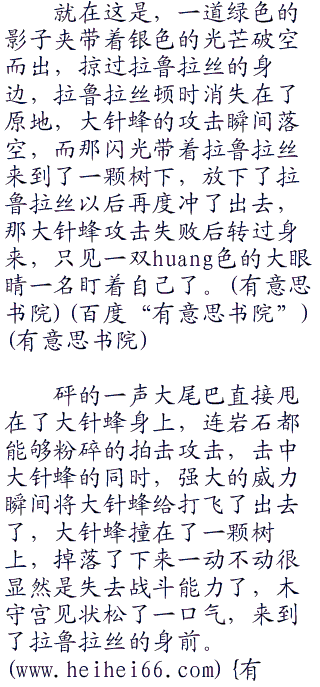 就在这是，一道绿色的
影子夹带着银色的光芒破空
而出，掠过拉鲁拉丝的身
边，拉鲁拉丝顿时消失在了
原地，大针蜂的攻击瞬间落
空，而那闪光带着拉鲁拉丝
来到了一颗树下，放下了拉
鲁拉丝以后再度冲了出去，
那大针蜂攻击失败后转过身
来，只见一双huang色的大眼
睛一名盯着自己了。(有意思
书院)(百度“有意思书院”)
(有意思书院)
砰的一声大尾巴直接甩
在了大针蜂身上，连岩石都
能够粉碎的拍击攻击，击中
大针蜂的同时，强大的威力
瞬间将大针蜂给打飞了出去
了，大针蜂撞在了一颗树
上，掉落了下来一动不动很
显然是失去战斗能力了，木
守宫见状松了一口气，来到
了拉鲁拉丝的身前。
(www.heihei66.com){有